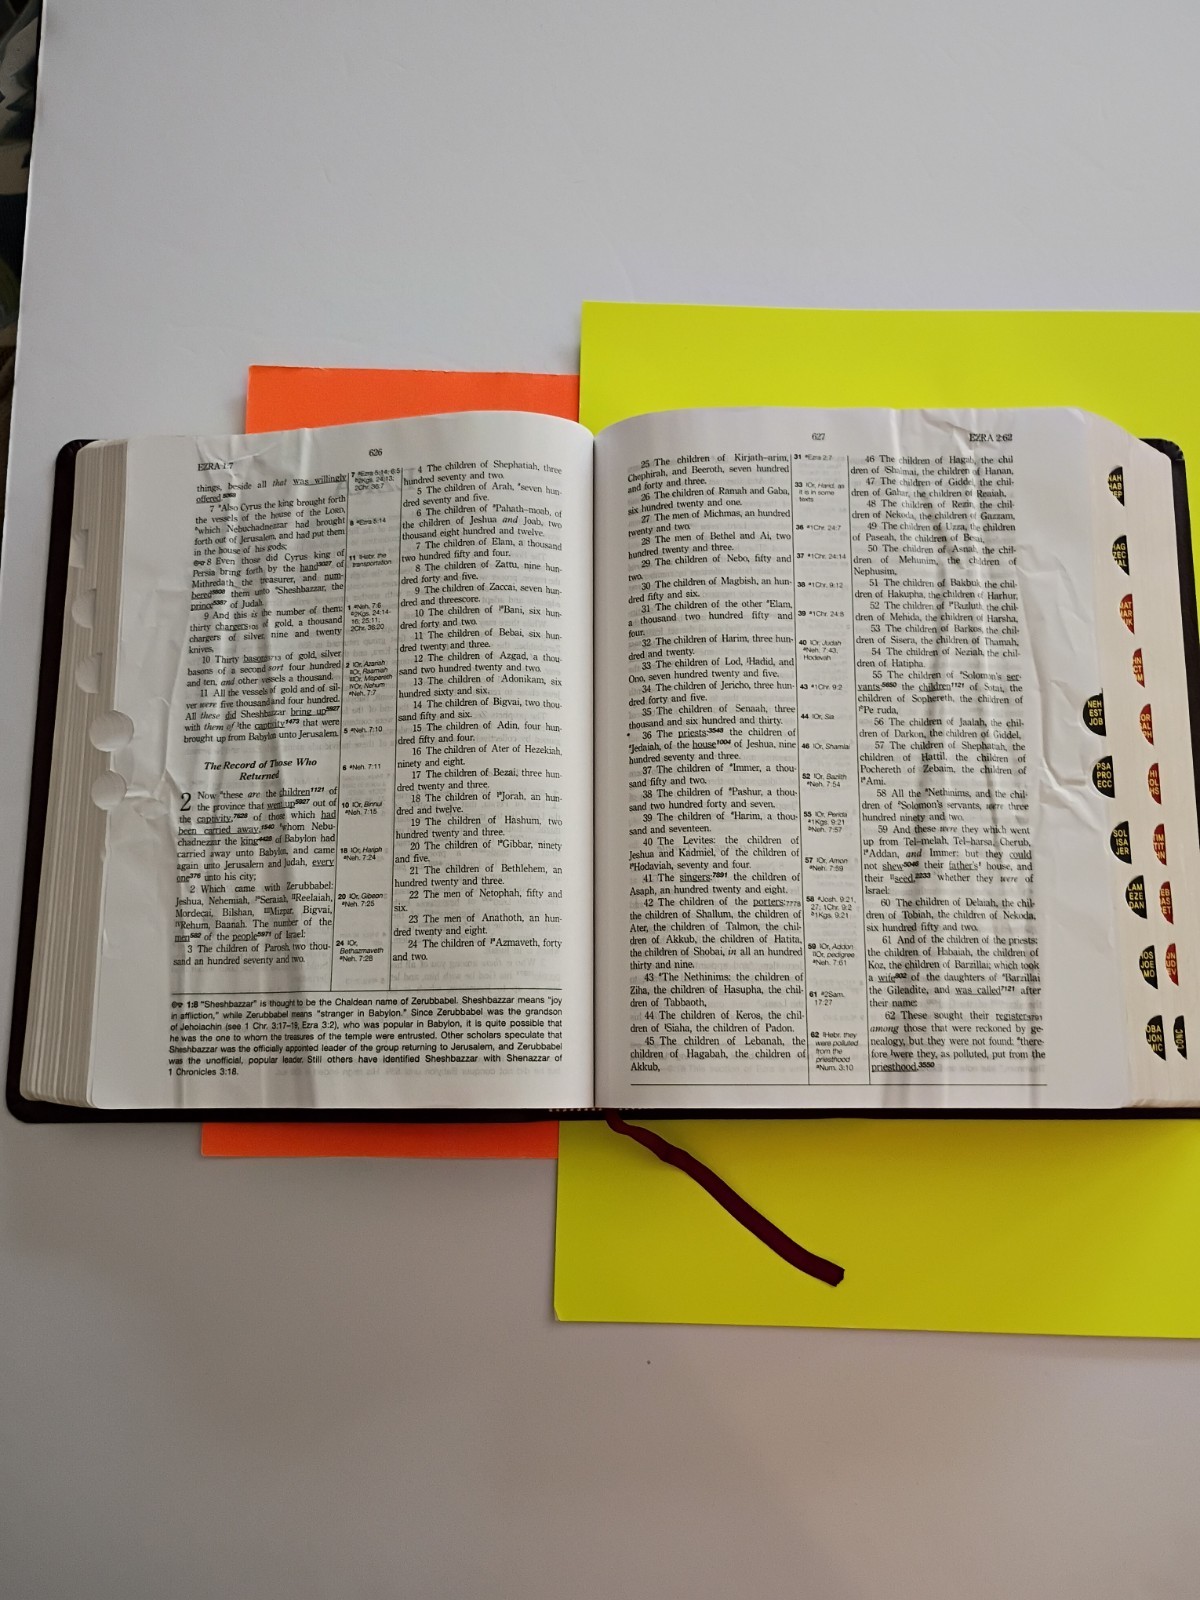 626
EZRA 1:7
things, beside all that was willingly
offered.
7 Also Cyrus the king brought forth
the vessels of the house of the LORD,
which Nebuchadnezzar had brought
forth out of Jerusalem, and had put them
in the house of his gods;
8 Even those did Cyrus king of
Persia bring forth by the hand of
Mithredath the treasurer, and num-
bered them unto Sheshbazzar, the
prince of Judah.
9 And this is the number of them:
thirty chargers of gold, a thousand
chargers of silver, nine and twenty
knives,
10 Thirty basons of gold, silver
basons of a second sort four hundred
and ten, and other vessels a thousand.
11 All the vessels of gold and of sil-
ver were five thousand and four hundred.
All these did Sheshbazzar bring up
with them of the captivity that were
brought up from Babylon unto Jerusalem.
The Record of Those Who
Returned
2 Now these are the children of
the province that went up out of
the captivity, of those which had
been carried away, whom Nebu-
chadnezzar the king of Babylon had
carried away unto Babylon, and came
again unto Jerusalem and Judah, every
one unto his city;
2 Which came with Zerubbabel:
Jeshua, Nehemiah, Seraiah, Reelaiah,
Mordecai, Bilshan, Mizpar, Bigvai,
Rehum, Baanah. The number of the
men of the people of Israel:
3 The children of Parosh, two thou-
sand an hundred seventy and two.
8 Ezra 5:14
11 Hebr. the
transportation
1 Neh. 7:6
2Kgs. 24:14-
16; 25:11;
2Chr. 36:20
2 Or, Azariah
Or, Raamiah
Or, Mispereth
Or, Nehum
Neh. 7:7
5 Neh. 7:10
6 Neh. 7:11
10 Or, Binnui
Neh. 7:15
18 Or, Hariph
Neh. 7:24
20 Or, Gibeon
Neh. 7:25
24 Or,
Bethazmaveth
Neh. 7:28
4 The children of Shephatiah, three
hundred seventy and two.
5 The children of Arah, seven hun-
dred seventy and five.
6 The children of Pahath-moab, of
the children of Jeshua and Joab, two
thousand eight hundred and twelve.
7 The children of Elam, a thousand
two hundred fifty and four.
8 The children of Zattu, nine hun-
dred forty and five.
9 The children of Zaccai, seven hun-
dred and threescore.
10 The children of Bani, six hun-
dred forty and two.
11 The children of Bebai, six hun-
dred twenty and three.
12 The children of Azgad, a thou-
sand two hundred twenty and two.
13 The children of Adonikam, six
hundred sixty and six.
14 The children of Bigvai, two thou-
sand fifty and six.
15 The children of Adin, four hun-
dred fifty and four.
16 The children of Ater of Hezekiah,
ninety and eight.
17 The children of Bezai, three hun-
dred twenty and three.
18 The children of Jorah, an hun-
dred and twelve.
19 The children of Hashum, two
hundred twenty and three.
20 The children of Gibbar, ninety
and five.
21 The children of Bethlehem, an
hundred twenty and three.
22 The men of Netophah, fifty and
six.
23 The men of Anathoth, an hun-
dred twenty and eight.
24 The children of Azmaveth, forty
and two.
1:8 "Sheshbazzar" is thought to be the Chaldean name of Zerubbabel. Sheshbazzar means "joy
in affliction," while Zerubbabel means "stranger in Babylon." Since Zerubbabel was the grandson
of Jehoiachin (see 1 Chr. 3:17–19, Ezra 3:2), who was popular in Babylon, it is quite possible that
he was the one to whom the treasures of the temple were entrusted. Other scholars speculate that
Sheshbazzar was the officially appointed leader of the group returning to Jerusalem, and Zerubbabel
was the unofficial, popular leader. Still others have identified Sheshbazzar with Shenazzar of
1 Chronicles 3:18.
627
EZRA 2:62
25 The children of Kirjath-arim,
Chephirah, and Beeroth, seven hundred
and forty and three.
26 The children of Ramah and Gaba,
six hundred twenty and one.
27 The men of Michmas, an hundred
twenty and two.
28 The men of Bethel and Ai, two
hundred twenty and three.
29 The children of Nebo, fifty and
two.
30 The children of Magbish, an hun-
dred fifty and six.
31 The children of the other Elam,
a thousand two hundred fifty and
four.
32 The children of Harim, three hun-
dred and twenty.
33 The children of Lod, Hadid, and
Ono, seven hundred twenty and five.
34 The children of Jericho, three hun-
dred forty and five.
35 The children of Senaah, three
thousand and six hundred and thirty.
36 The priests: the children of
Jedaiah, of the house of Jeshua, nine
hundred seventy and three.
37 The children of Immer, a thou-
sand fifty and two.
38 The children of Pashur, a thou-
sand two hundred forty and seven.
39 The children of Harim, a thou-
sand and seventeen.
40 The Levites: the children of
Jeshua and Kadmiel, of the children of
Hodaviah, seventy and four.
41 The singers: the children of
Asaph, an hundred twenty and eight.
42 The children of the porters:
the children of Shallum, the children of
Ater, the children of Talmon, the chil-
dren of Akkub, the children of Hatita,
the children of Shobai, in all an hundred
thirty and nine.
43 The Nethinims: the children of
Ziha, the children of Hasupha, the chil-
dren of Tabbaoth,
44 The children of Keros, the chil-
dren of Siaha, the children of Padon.
45 The children of Lebanah, the
children of Hagabah, the children of
Akkub,
31 Ezra 2:7
33 Or, Harid, as
it is in some
texts
36 1Chr. 24:7
37 1Chr. 24:14
38 1Chr. 9:12
39 1Chr. 24:8
40 Or, Judah
Neh. 7:43,
Hodevah
43 1Chr. 9:2
44 Or, Sia
46 Or, Shamlai
52 Or, Bazlith
Neh. 7:54
55 Or, Perida
1Kgs. 9:21
Neh. 7:57
57 Or, Amon
Neh. 7:59
58 Josh. 9:21,
27; 1Chr. 9:2
1Kgs. 9:21
59 Or, Addon
Or, pedigree
Neh. 7:61
61 2Sam.
17:27
62 Hebr. they
were polluted
from the
priesthood
Num. 3:10
46 The children of Hagab, the chil
dren of Shalmai, the children of Hanan,
47 The children of Giddel, the chil-
dren of Gahar, the children of Reaiah,
48 The children of Rezin, the chil-
dren of Nekoda, the children of Gazzam,
49 The children of Uzza, the children
of Paseah, the children of Besai,
50 The children of Asnah, the chil-
dren of Mehunim, the children of
Nephusim,
51 The children of Bakbuk, the chil-
dren of Hakupha, the children of Harhur,
52 The children of Bazluth, the chil-
dren of Mehida, the children of Harsha,
53 The children of Barkos, the chil-
dren of Sisera, the children of Thamah,
54 The children of Neziah, the chil-
dren of Hatipha.
55 The children of Solomon's ser-
vants: the children of Sotai, the
children of Sophereth, the children of
Peruda,
56 The children of Jaalah, the chil-
dren of Darkon, the children of Giddel,
57 The children of Shephatiah, the
children of Hattil, the children of
Pochereth of Zebaim, the children of
Ami.
58 All the Nethinims, and the chil-
dren of Solomon's servants, were three
hundred ninety and two.
59 And these were they which went
up from Tel-melah, Tel-harsa, Cherub,
Addan, and Immer: but they could
not shew their father's house, and
their seed, whether they were of
Israel:
60 The children of Delaiah, the chil-
dren of Tobiah, the children of Nekoda,
six hundred fifty and two.
61 And of the children of the priests:
the children of Habaiah, the children of
Koz, the children of Barzillai; which took
a wife of the daughters of Barzillai
the Gileadite, and was called after
their name:
62 These sought their register
among those that were reckoned by ge-
nealogy, but they were not found: there-
fore were they, as polluted, put from the
priesthood.
NEH
EST
JOB
PSA
PRO
ECC
SOL
ISA
JER
LAM
EZE
DAN
JOE
CONC